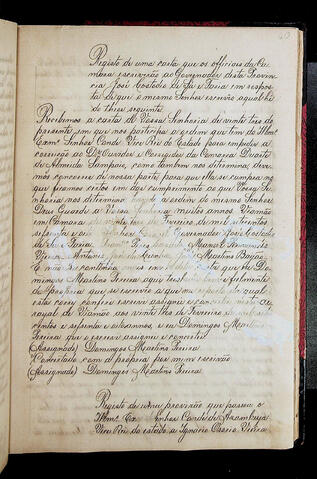 Registo de uma carta que os officiaes da Ca-
mara escreverão ao Governador desta Provin-
cia José Custodio de Sá e Faria em respos-
ta de que o mesmo Senhor escreveo aqual he
do thior seguinte
Recebemos a carta de Vossa Senhoria de vinte tres do
presente em que nos participa a ordem que tem do Illmo
Exmo Senhor Conde Vice Rei do Estado para impedir a
correição ao Dr Ouvidor e Corregedor da Comarca Duarte
de Almeida Sampaio, como tambem nos determina deve-
mos concorrer de nossa parte para que ella se cumpra no
que ficamos certos em dar cumprimento ao que Vossa Se-
nhoria nos determina a ordem do mesmo Senhor
Deus Guarde a Vossa Senhoria muitos annos Viamão
em Camara de vinte de Fevereiro de mil setecentos
sesenta e Senhor Governador José Custodio
de Sá e Faria. Manoel
Vieira Antonio José Martins Baião
E não se continha mais em carta que eu Do-
mingos Martins Pereira aqui registei fielmente
da propria a que se escreveo a que me a qual
esta como confere escrevi assignei e consertei neste ar-
rayal de Viamão aos vinte de Fevereiro de mil sete
centos e sesenta e annos, e eu Domingos Martins
Pereira que o escrevi assignei e concertei
(Assignado) Domingos Martins Pereira
Concertado com a propria por mim escrivão
(Assignado) Domingos Martins Pereira
Registo de uma provizão que passou o
Illmo Ex Senhor Conde de Azambuja
Vice Rei do estado a Ignacio Ozorio Vieira